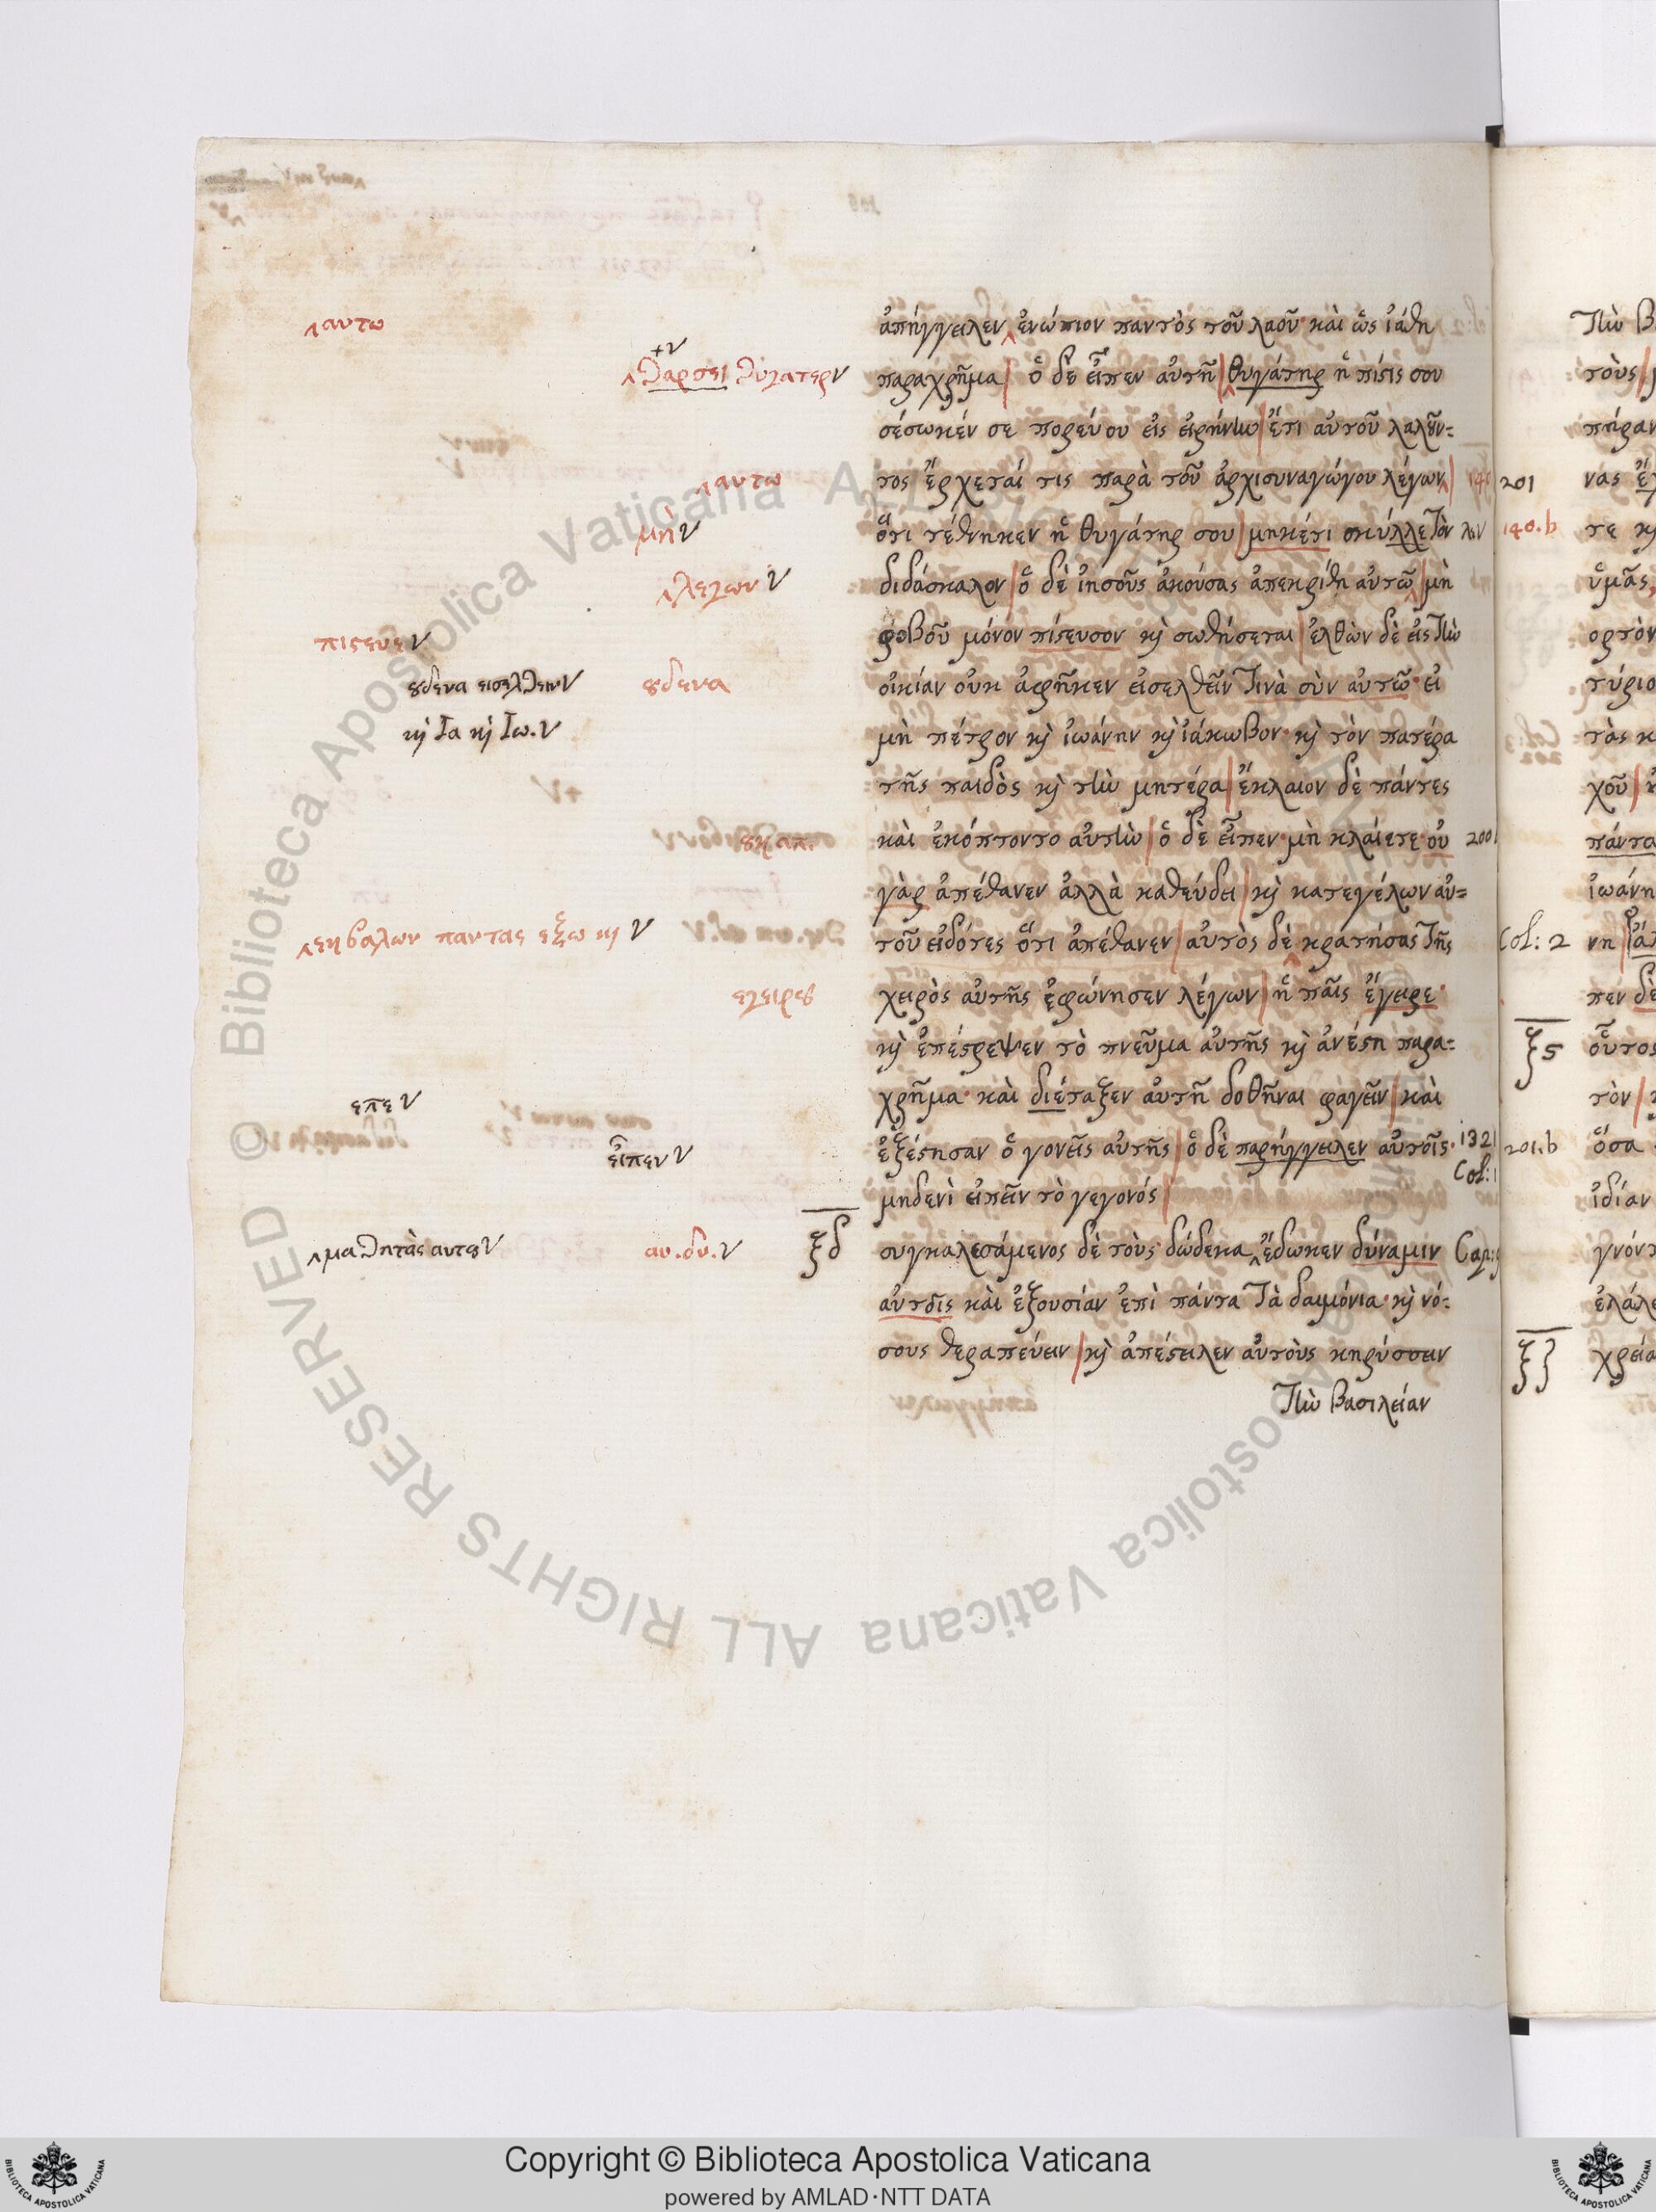 ἀπήγγειλεν ἐνώπιον παντὸς τοῦ λαοῦ· καὶ ὡς ἰάθη
παραχρῆμα| ὁ δὲ εἶπεν αὐτῆ| θυγάτηρ ἡ πίστις σου
σέσωκέν σε πορεύου εἰς εἰρήνην| ἔτι αὐτοῦ λαλοῦν=
τος ἔρχεταί τις παρὰ τοῦ ἀρχισυναγώγου λέγων|
ὅτι τέθνηκεν ἡ θυγάτηρ σου| μηκέτι σκύλλε τὸν
διδάσκαλον| ὁ δὲ ἰησοῦς ἀκούσας ἀπεκρίθη αὐτῶ| μὴ
φοβοῦ μόνον πίστευσον κὶ σωθήσεται| ἐλθὼν δὲ εἰς τὴν
οἰκίαν οὐκ ἀφῆκεν εἰσελθεῖν τινὰ σὺν αὐτῶ· εἰ
μὴ πέτρον κὶ ἰωάνην κὶ ἰάκωβον· κὶ τὸν πατέρα
τῆς παιδὸς κὶ τὴν μητέρα| ἔκλαιον δὲ πάντες
καὶ ἐκόπτοντο αὐτὴν| ὁ δὲ εἶπεν· μὴ κλαίετε· οὐ
γὰρ ἀπέθανεν ἀλλὰ καθεύδει| κὶ κατεγέλων αὐ=
τοῦ εἰδότες ὅτι ἀπέθανεν| αὐτὸς δὲ κρατήσας τῆς
χειρὸς αὐτῆς ἐφώνησεν λέγων| ἡ παῖς ἔγειρε·
κὶ ἐπέστρεψεν τὸ πνεῦμα αὐτῆς κὶ ἀνέστη παρα=
χρῆμα· καὶ διέταξεν αὐτῆ δοθῆναι φαγεῖν| καὶ
ἐξέστησαν ὁ γονεῖς αὐτῆς| ὁ δὲ παρήγγειλεν αὐτοῖς·
μηδενὶ εἰπεῖν τὸ γεγονός|
συγκαλεσάμενος δὲ τοὺς δώδεκα ἔδωκεν δύναμιν
αὐτοῖς καὶ ἐξουσίαν ἐπὶ πάντα τὰ δαιμόνια· κὶ νό=
σους θεραπεύειν| κὶ ἀπέστειλεν αὐτοὺς κηρύσσειν
τὴν βασιλείαν
αυτω
θαρσει θυγατερ ν
αυτω
μὴ ν
λεγων ν
πιστευε ν
ουδενα εισελθειν ν
ουδενα
κὶ Ια κὶ Ιω. ν
ουκ απ.
εκβαλων παντας εξω κι ν
εγειρου
επε ν
εἶπεν ν
μαθητὰς αυτου ν
αυ. δυ. ν
ξδ
200
132
Col: 1
Cap:
201
140.b
Col: 2
ξς
201.b
ξζ
τὴν β
τοὺς
πήραν
νας ἔχ
τε κὶ
ὑμᾶς
ορτὸν
τύριο
τὰς κ
χοῦ
πάντα
ἰωάνη
νη
πεν δὲ
οὗτος
τὸν
ὅσα
ἰδίαν
γνόντ
ἐλάλε
χρεία
Copyright © Biblioteca Apostolica Vaticana
powered by AMLAD·NTT DATA
© Biblioteca Apostolica Vaticana ALL RIGHTS RESERVED
BIBLIOTECA APOSTOLICA VATICANA
BIBLIOTECA APOSTOLICA VATICANA